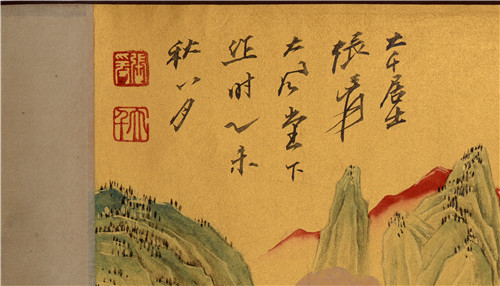 大千居士
張爰
大风堂下
时乙未
秋八月
張爰
大千